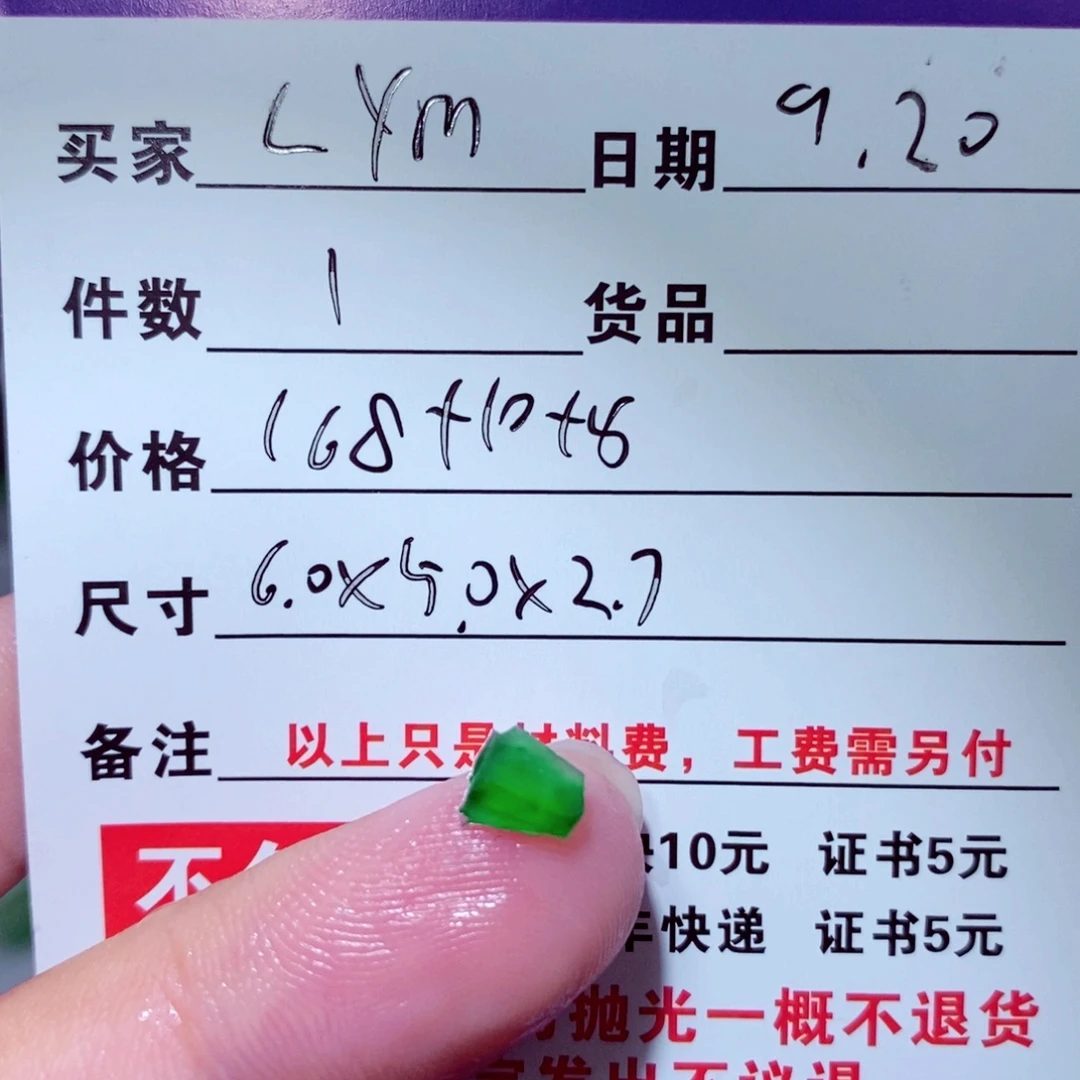 买家 LYM 日期 9.20
件数 1 货品
价格 168+10+8
尺寸 6.0x5.0x2.7
备注 以上只是材料费，工费需另付
不
10元 证书5元
快递 证书5元
抛光一概不退货
发出不议退